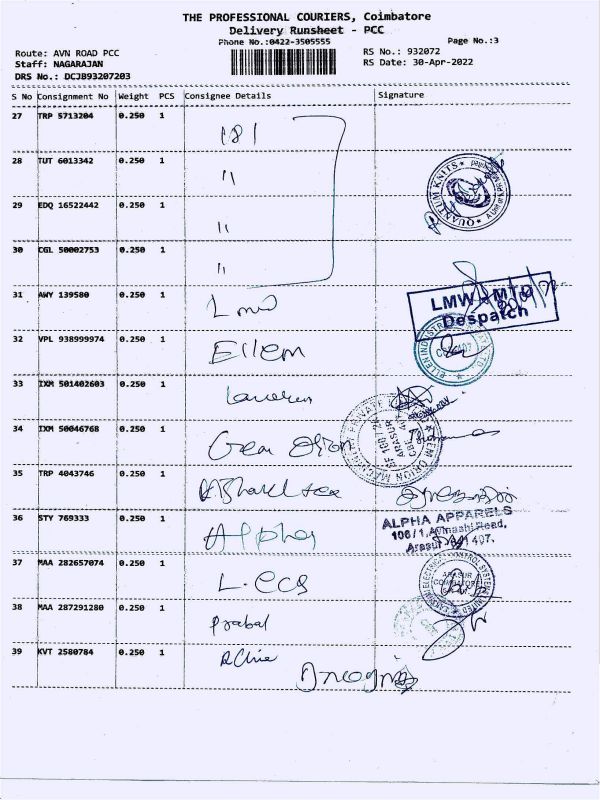 THE PROFESSIONAL COURIERS, Coimbatore
Delivery Runsheet - PCC
Phone No.:0422-3505555
Page No.:3
Route: AVN ROAD PCC
RS No.: 932072
Staff: NAGARAJAN
RS Date: 30-Apr-2022
DRS No.: DCJ893207203
S No Consignment No Weight PCS Consignee Details Signature
27 TRP 5713204 0.250 1
28 TUT 6013342 0.250 1 "
QUANTUM KNITS
29 EDQ 16522442 0.250 1 "
30 CGL 50002753 0.250 1 "
31 AWY 139580 0.250 1 Lmw
LMW - MTD
Despatch
32 VPL 938999974 0.250 1 Ellem
33 IXM 501402603 0.250 1
34 IXM 50046768 0.250 1 Gem Orion
35 TRP 4043746 0.250 1
36 STY 769333 0.250 1 Alpha
ALPHA APPARELS
106/1, Avinashi Road,
Arasur 641 407.
37 MAA 282657074 0.250 1 L.ecs
ARASUR
COIMBATORE
38 MAA 287291280 0.250 1 prabal
39 KVT 2580784 0.250 1